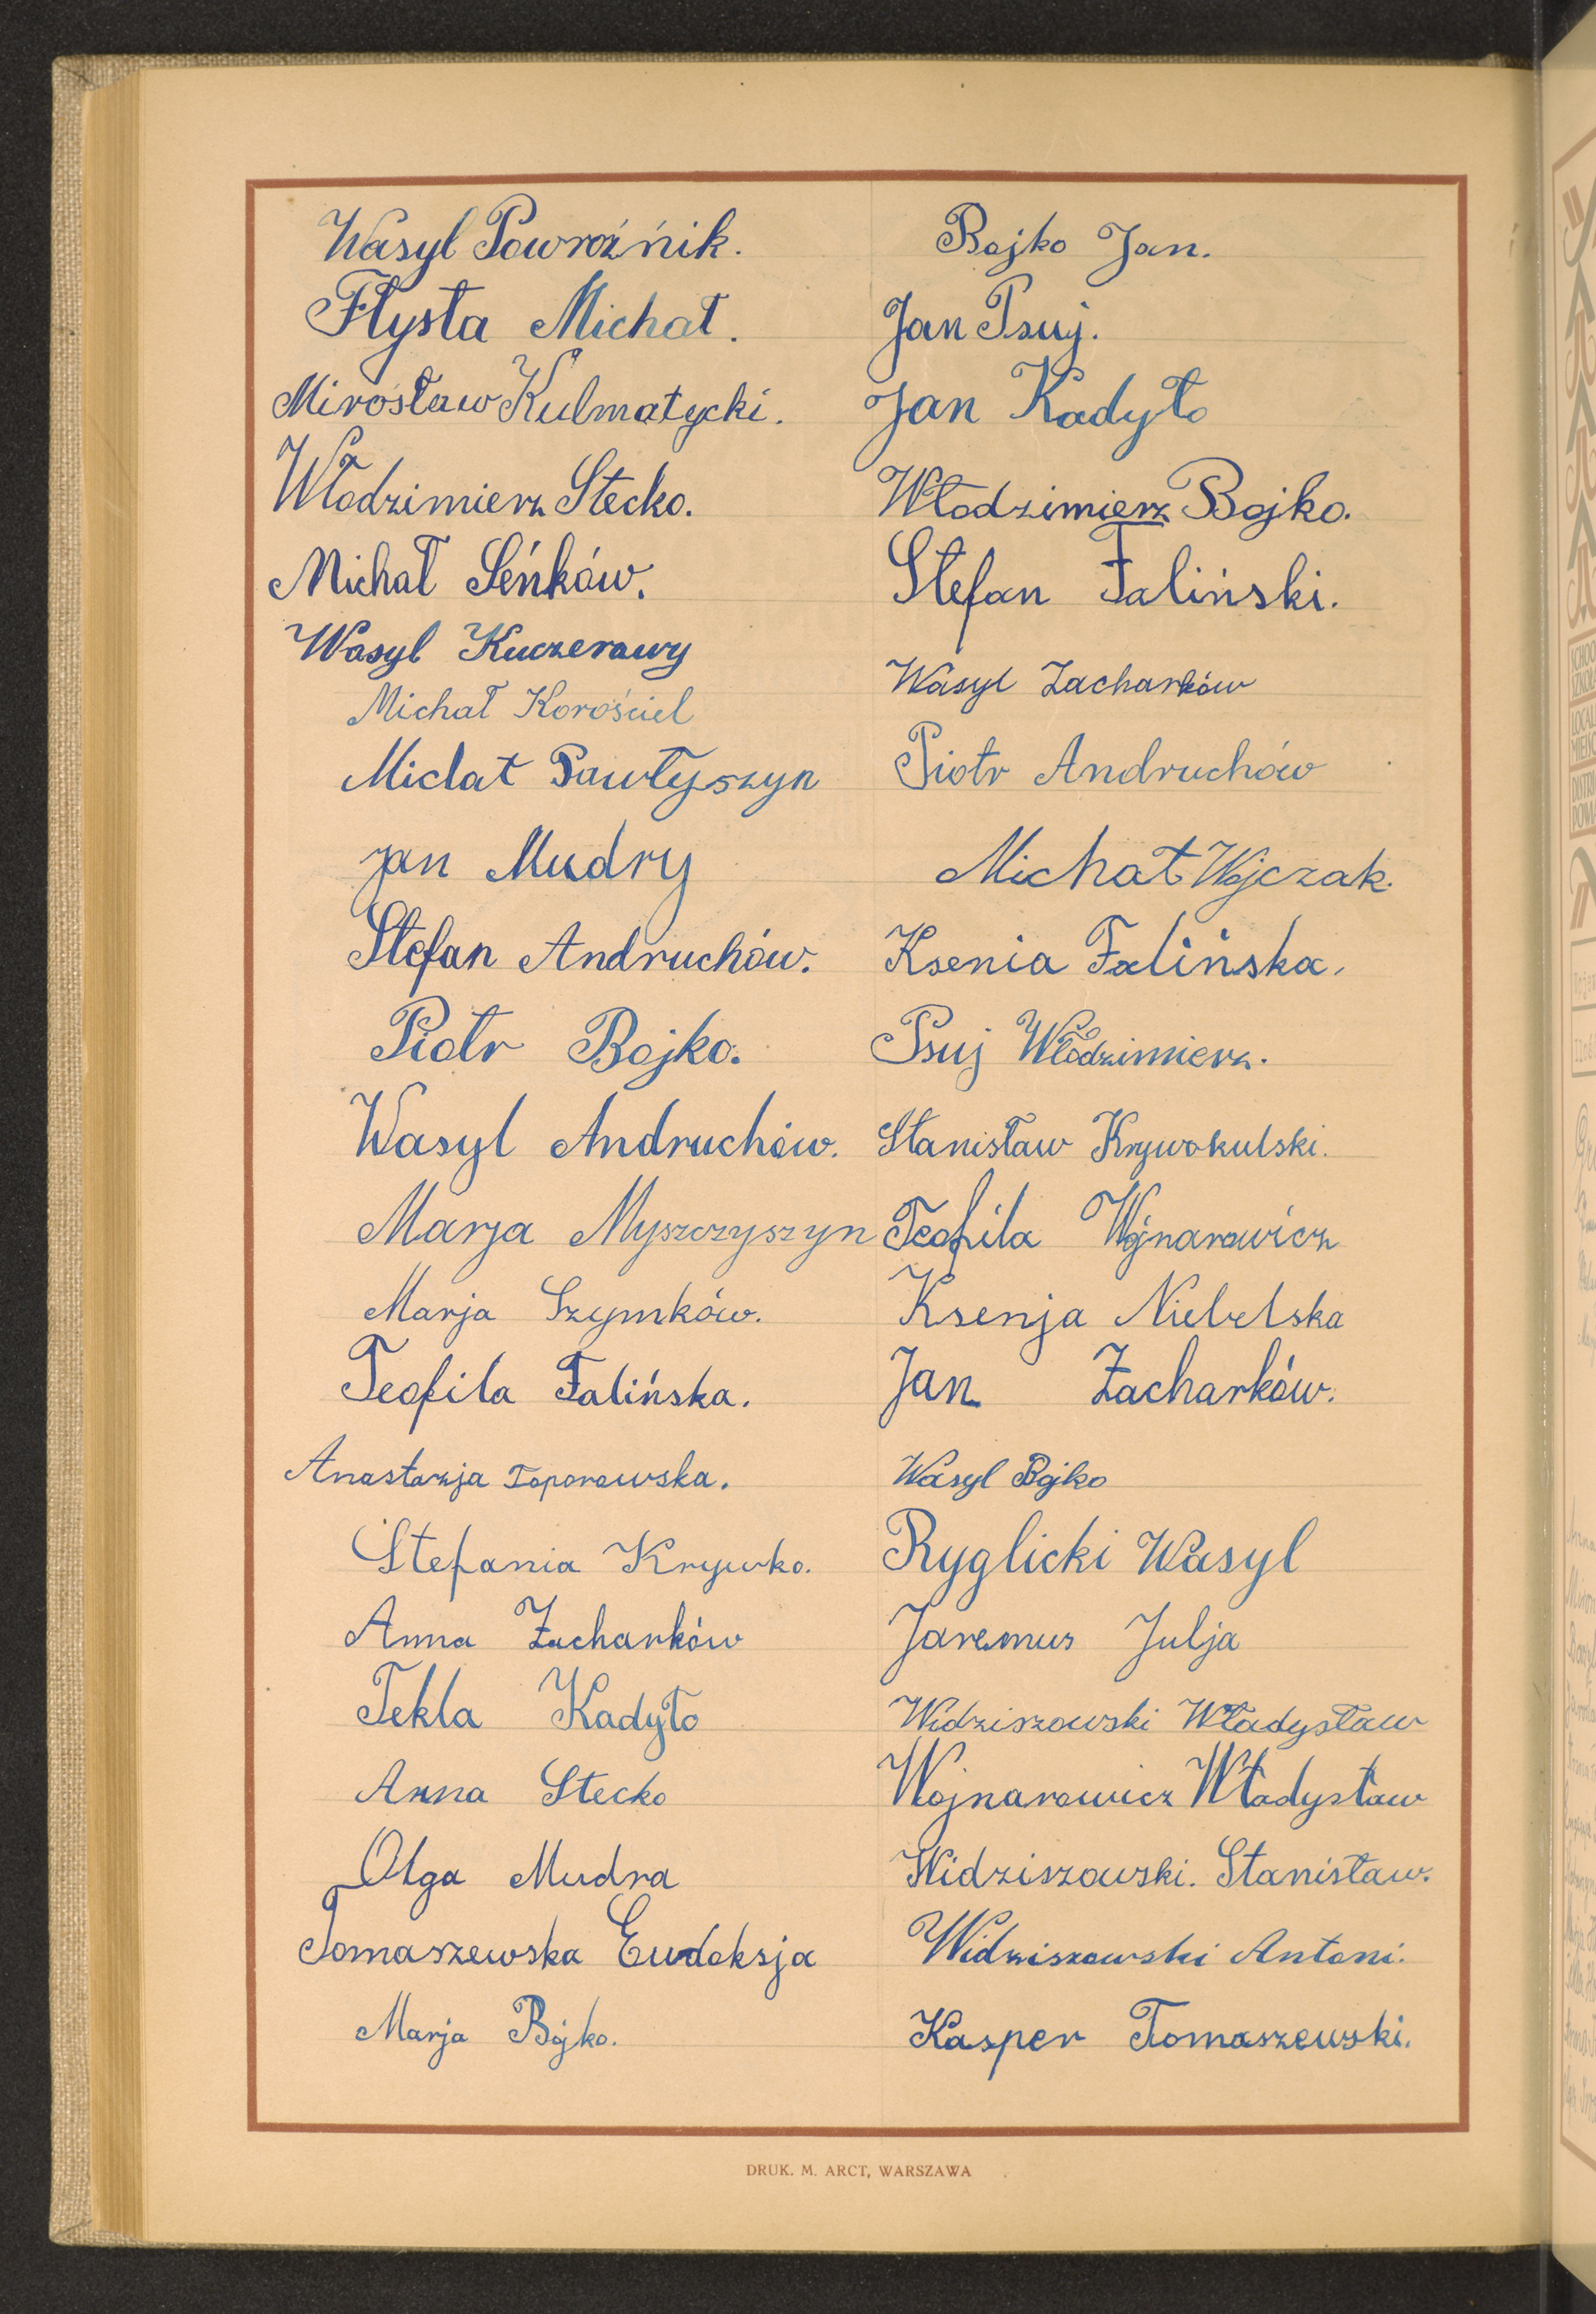 Wasyl Powroźnik.
Flysta Michał.
Mirosław Kulmatycki.
Włodzimierz Stecko.
Michał Seńków.
Wasyl Kuczerawy
Michał Korościel
Miclat Pawłyszyn
Jan Mudry
Stefan Andruchów.
Piotr Bojko.
Wasyl Andruchów.
Marja Myszczyszyn
Marja Szymków.
Teofila Falińska.
Anastazja Toporowska.
Stefania Krywko.
Anna Zacharków
Tekla Kadyło
Anna Stecko
Olga Mudra
Tomaszewska Eudoksja
Marja Bojko.
Bojko Jan.
Jan Psuj.
Jan Kadyło
Włodzimierz Bojko.
Stefan Faliński.
Wasyl Zacharków
Piotr Andruchów
Michał Wojczak.
Ksenia Falińska.
Psuj Włodzimierz.
Stanisław Krywokulski.
Teofila Wojnarowicz
Ksenja Niebelska
Jan Zacharków.
Wasyl Bojko
Ryglicki Wasyl
Jaremus Julja
Widziszowski Władysław
Wojnarowicz Władysław
Widziszowski. Stanisław.
Widziszowski Antoni.
Kasper Tomaszewski.
DRUK. M. ARCT, WARSZAWA